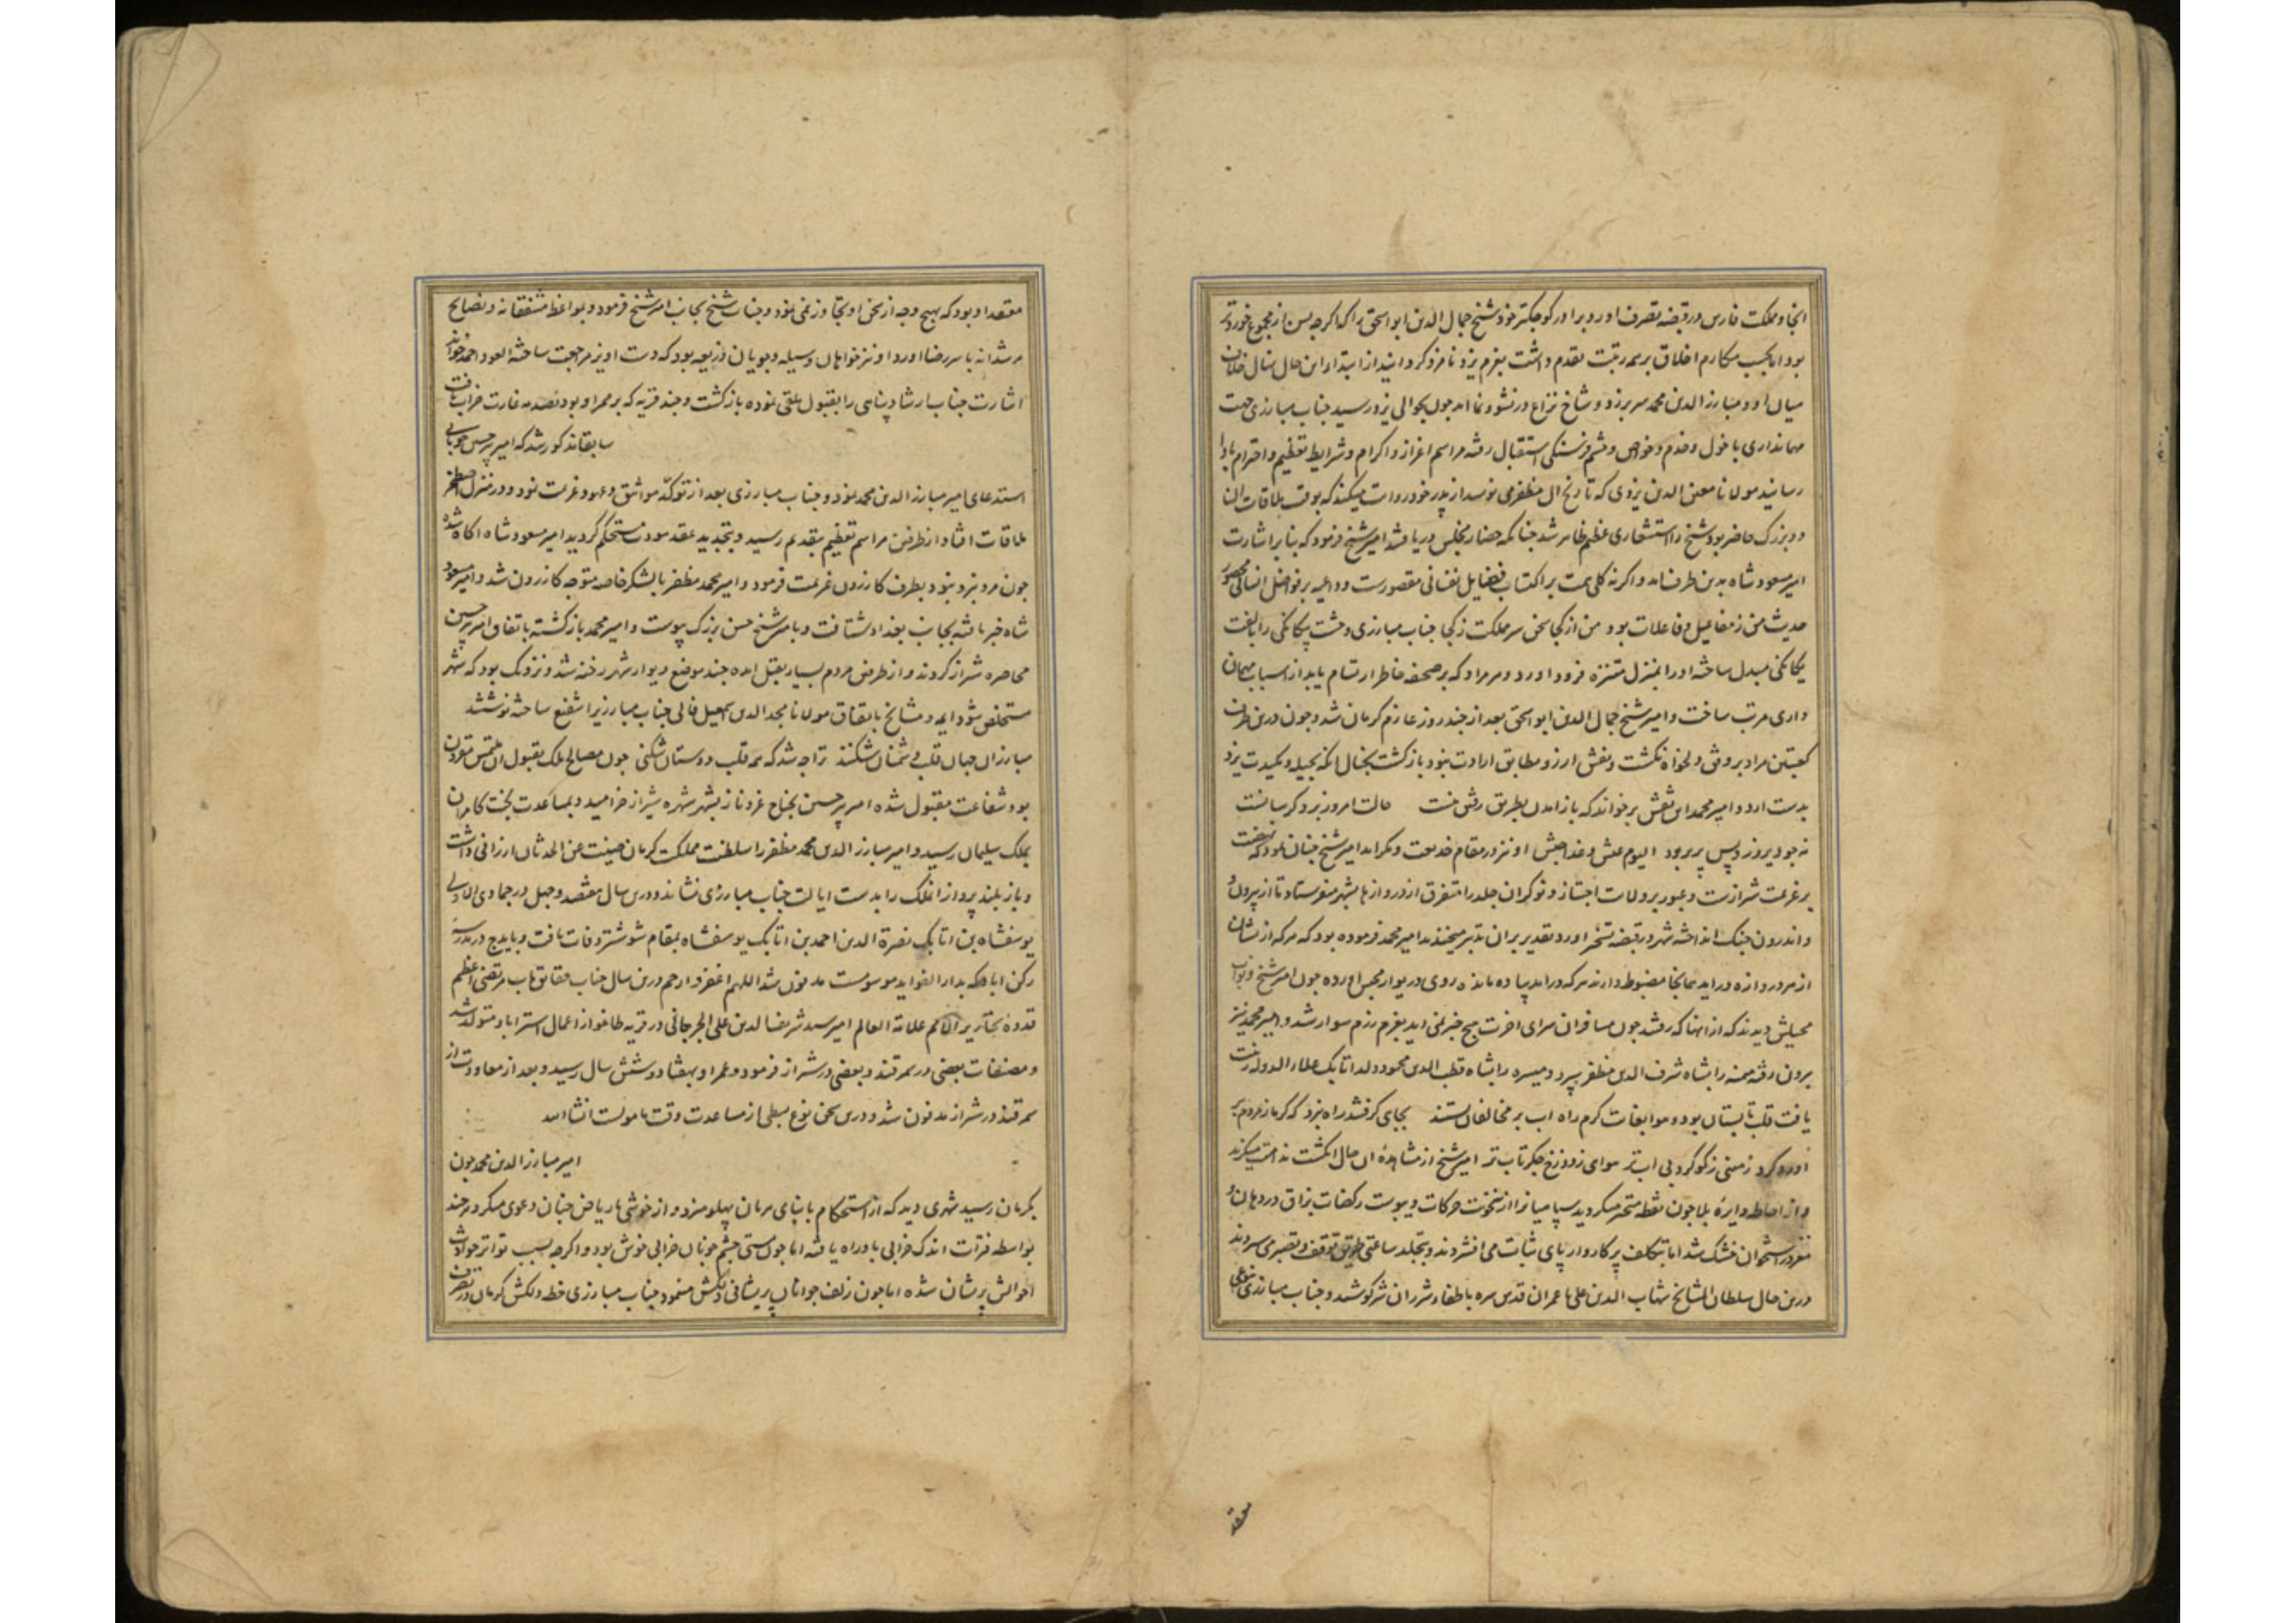 انجا و مملکت فارس در قبضه تصرف اورد و برادر کوجکتر خود شیخ جمال الدین ابو اسحق را که اکرجه بسن از مجموع خوردتر
بود اما بحسب مکارم اخلاق بر همه رتبت تقدم داشت بعزم یزد نامزد کردانید از ابتداء این حال نهال خلاف
میان او و مبارز الدین محمد سر برزد و شاخ نزاع در نشو و نما امد جون بحوالی یزد رسید جناب مبارزی جهت
مهمانداری با خول و خدم و خواص و حشم فرسنکی استقبال رفته مراسم اعزاز و اکرام و شرایط تعظیم و احترام بادا
رسانید مولانا معین الدین یزدی که تاریخ ال مظفر می نویسد از پدر خود روایت میکند که بوقت ملاقات ان
دو بزرک حاضر بود شیخ را استشعاری عظیم ظاهر شد جنانکه حضار مجلس دریافتند امیر شیخ فرمود که بنا بر اشارت
امیر مسعود شاه بدین طرف امد و اکرنه کلی همت بر اکتساب فضایل نفسانی مقصورست و داعیه بر فواضل انسانی محصور
حدیث من ز مفاعیل و فاعلات بود من از کجا سخن سر مملکت ز کجا جناب مبارزی وحشت بیکانکی را بالفت
یکانکی مبدل ساخته او را بمنزل متنزه فرود اورد و هر مراد که بر صحیفه خاطر ارتسام یابد از اسباب مهمان
داری مرتب ساخت و امیر شیخ جمال الدین ابو اسحق بعد از جند روز عازم کرمان شد و جون درین طرف
کعبتین مراد بر وفق دلخواه نکشت و نقش ارزو مطابق ارادت نبود بازکشت بخیال انکه بحیله و مکیدت یزد
بدست ارد و امیر محمد این نقش برخواند که باز امدن بطریق روش نیست حالت امروز بزد کر سانست
نه جو دیروز و پس پریر بود الیوم عیش و غدا جیش او نیز در مقام خدیعت و مکر امد امیر شیخ جنان نمود که نهضت
بر عزیمت شیرازست و عبور بر ولایات اجتیاز و نوکران جلد را متفرق از دروازها بشهر میفرستاد تا از بیرون و
و اندرون جنک انداخته شهر در قبضه تسخیر اورد و تقدیر بران تدبیر میخندید امیر محمد فرموده بود که هرکه از نشان
از هر دروازه دراید همانجا مضبوط دارند هرکه دراید پیاده ماند روی در دیوار محبس اورده جون امیر شیخ و نواب
محیلش دیدند که از انها که رفتند جون مسافران سرای اخرت هیج خبر نمی اید بعزم رزم سوار شد و امیر محمد نیز
برون رفته میمنه را بشاه شرف الدین مظفر سپرد و میسره را بشاه قطب الدین محمود و لد اتابک علاء الدوله زینت
یافت قلب تابستان بود و هوا بغایت کرم راه اب بر مخالفان بستند بجای کرفتند راه نبرد که کرما ز مردم بر
اورد کرد زمینی ز کوکرد بی اب تر هوای ز دوزخ جکرتاب تر امیر شیخ از مشاهده ان حال انکشت ندامت میکزید
و از احاطه دایره بلا جون نقطه متحیر میکردید سپاهیانرا از سخونت حرکات و یبوست رکضات بزاق در دهان و
مغز در استخوان خشک شد اما بتکلف پرکاروار پای ثبات می افشردند و بتجلد ساعتی طریق توقف و تصبر می سپردند
درین حال سلطان المشایخ شهاب الدین علی با عمران قدس سره باطفاء شرر ان شر کوشید و جناب مبارزی بنوعی
معتقد
معتقد او بود که بهیج وجه از سخن او تجاوز نمی نمود و جناب شیخ بجانب امیر شیخ فرمود و بمواعظ مشفقانه و نصایح
مرشدانه با سر رضا اورد او نیز خواهان وسیله و جویان ذریعه بود که دست اویز مراجعت ساخته العود احمد خواند
اشارت جناب ارشاد پناهی را بقبول تلقی نموده بازکشت و جند قریه که بر ممر او بود بصدمه غارت خراب یافت
سابقا مذکور شد که امیر پیر حسین جوبانی
استدعای امیر مبارز الدین محمد نمود و جناب مبارزی بعد از توکد مواثیق و عهود عزیمت نمود و در منزل اصطخر
ملاقات افتاد از طرفین مراسم تعظیم بتقدیم رسید و بتجدید عقد مودت مستحکم کردید امیر مسعود شاه اکاه شده
جون مرد نبرد نبود بطرف کازرون عزیمت فرمود و امیر محمد مظفر با لشکر خاصه متوجه کازرون شد و امیر مسعود
شاه خبر یافته بجانب بغداد شتافت و با میر شیخ حسن بزرک پیوست و امیر محمد بازکشته باتفاق امیر پیر حسین
محاصره شیراز کردند و از طرفین مردم بسیار بقتل امده جند موضع دیوار شهر رخنه شد و نزدیک بود که شهر
مستخلص شود ایمه و مشایخ باتفاق مولانا مجد الدین اسمعیل فالی جناب مبارزیرا شفیع ساخته نوشتند
مبارزان جهان قلب دشمنان شکنند ترا جه شد که همه قلب دوستان شکنی جون مصالح ملک بقبول ان ملتمس مقرون
بود شفاعت مقبول شده امیر پیر حسین بجناح عز و ناز بشهر شهره شیراز خرامید و بمساعدت بخت کامران
بملک سلیمان رسید و امیر مبارز الدین محمد مظفر را سلطنت مملکت کرمان صینت عن الحدثان ارزانی داشت
و باز بلند پرواز انملک را بدست ایالت جناب مبارزی نشاند و درین سال هفتصد و جهل در جمادی الاولی
یوسفشاه بن اتابک نصرة الدین احمد بن اتابک یوسفشاه بمقام شوشتر وفات یافت و بایدج در مدرسه
رکن اباد که بدار الفواید موسومست مدفون شد اللهم اغفر و ارحم درین سال جناب حقایق ماب مرتضی اعظم
قدوهٔ نحاریر الامم علامة العالم امیر سید شریف الدین علی الجرجانی در قریه طاغو از اعمال استراباد متولد شد
و مصنفات بعضی در سمرقند و بعضی در شیراز فرمود و عمر او بهفتاد و شش سال رسید و بعد از معاودت از
سمرقند در شیراز مدفون شد و درین سخن نوع بسطی از مساعدت وقت مامولست انشا الله
امیر مبارز الدین محمد جون
بکرمان رسید شهری دید که از استحکام با بنای هرمان پهلو میزد و از خوشی با ریاض جنان دعوی میکرد هرجند
بواسطه فترات اندک خرابی بدو راه یافته اما جون مستی جشم خوبان خرابی خوش بود و اکرجه بسبب تواتر حوادث
احوالش پریشان شده اما جون زلف جوانان پریشانی دلکش مینمود جناب مبارزی خطه دلکش کرمان در تصرف